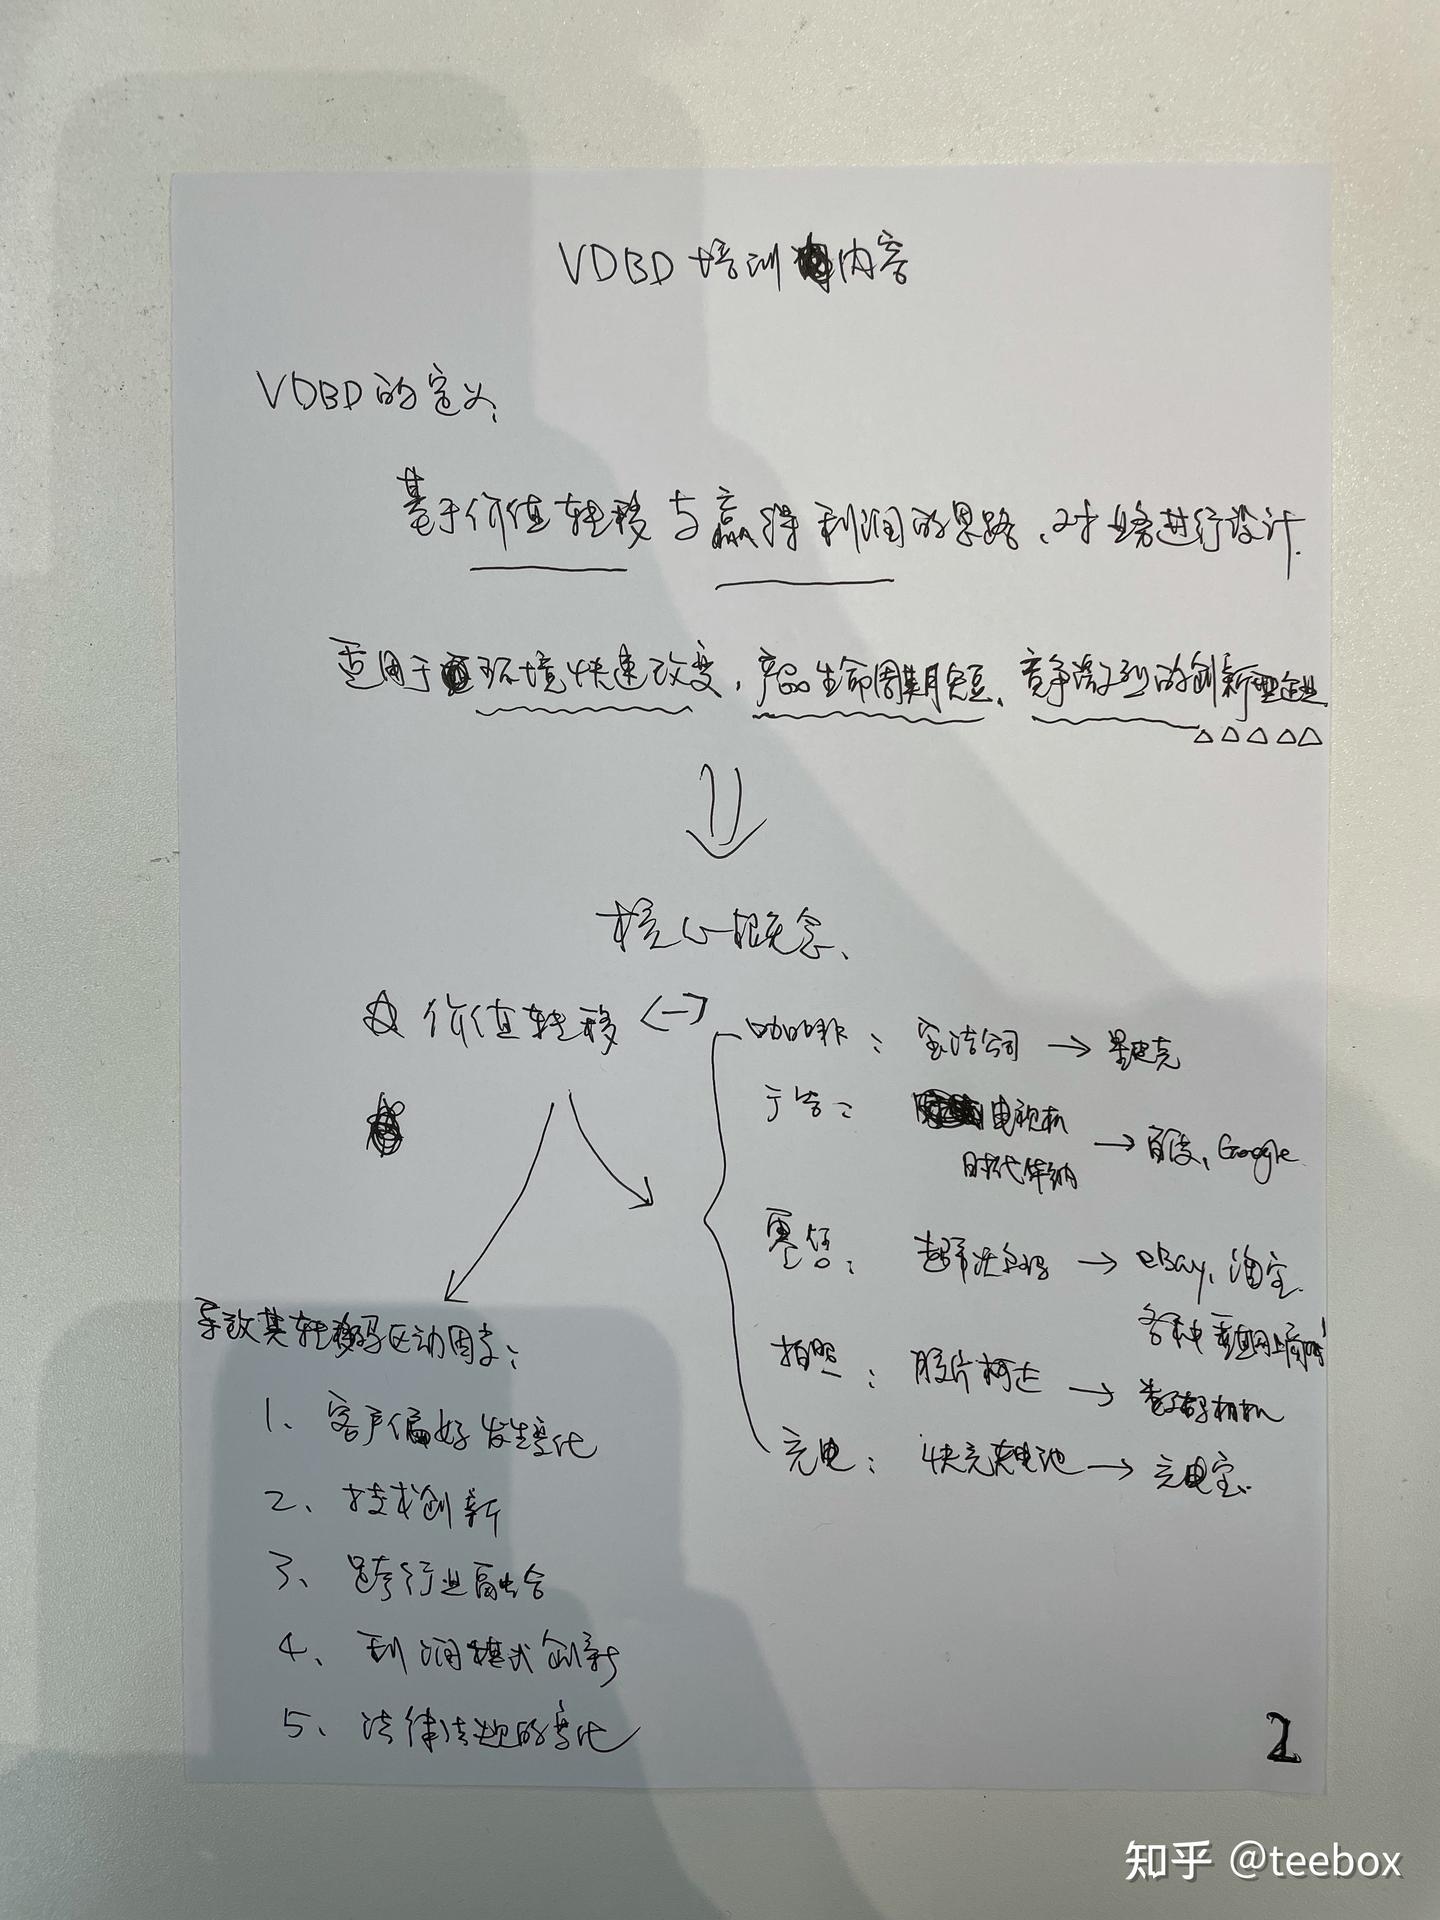 VDBD培训内容
VDBD的定义、
基于价值转移与赢得利润的思路、对业务进行设计.
适用于环境快速改变,产品生命周期短、竞争激烈的创新型企业
核心概念、
价值转移
咖啡: 宝洁公司 → 星巴克
广告: 电视机 → 百度、Google
时代华纳
零售: 超市沃尔玛 → eBay、淘宝
各种垂直网上商城
拍照: 胶片柯达 → 数码相机
充电: 快充电池 → 充电宝
导致其转移的驱动因素:
1、客户偏好发生变化
2、技术创新
3、跨行业融合
4、利润模式创新
5、法律法规的变化
2
知乎 @teebox